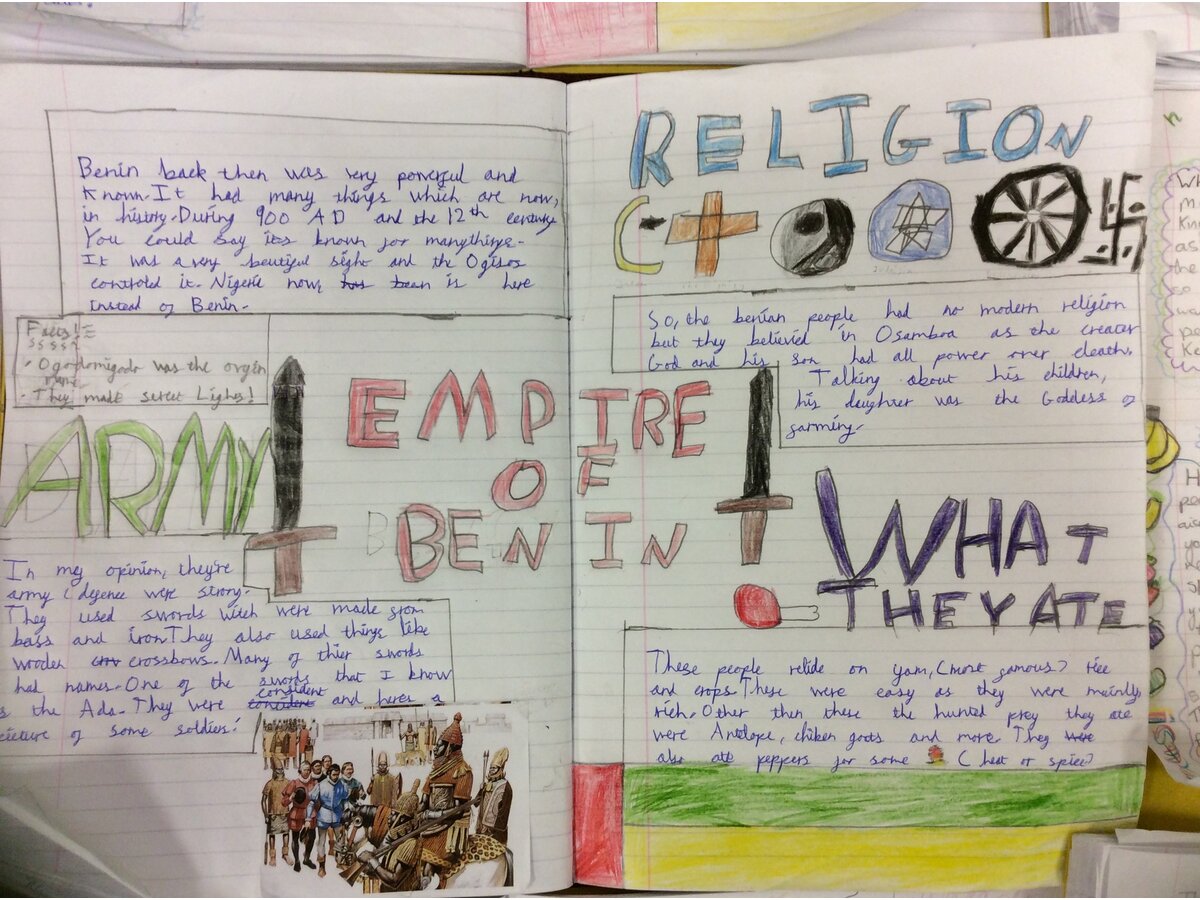 Benin back then was very powerful and
known. It had many things which are now,
in history. During 900 AD and the 12th century
You could say its known for manythings.
It was a very beutiful sight and the Ogisos
controld it. Nigeria now, is here
instead of Benin.
Facts!
• Ogodomigodo was the orgin
name
• They made street Lighs!
ARMY
In my opinion, they're
army (defence were strong.
They used swords witch were made from
bass and iron. They also used things like
wooden crossbows. Many of thier swords
had names. One of the swords that I know
is the Ada. They were confident and heres a
picture of some soldiers:
EMPIRE
OF
BENIN
RELIGION
So, the benian people had no modern religion
but they believed in Osamboa as the creater
God and his son had all power over death.
Talking about his children,
his daughter was the Goddess of
farming.
WHAT
THEY ATE
These people relide on yam, (most famous) rice
and crops. These were easy as they were mainly
rich. Other then these the hunted prey they ate
were Antlope, chiken goats and more. They
also ate peppers for some (heat or spice)